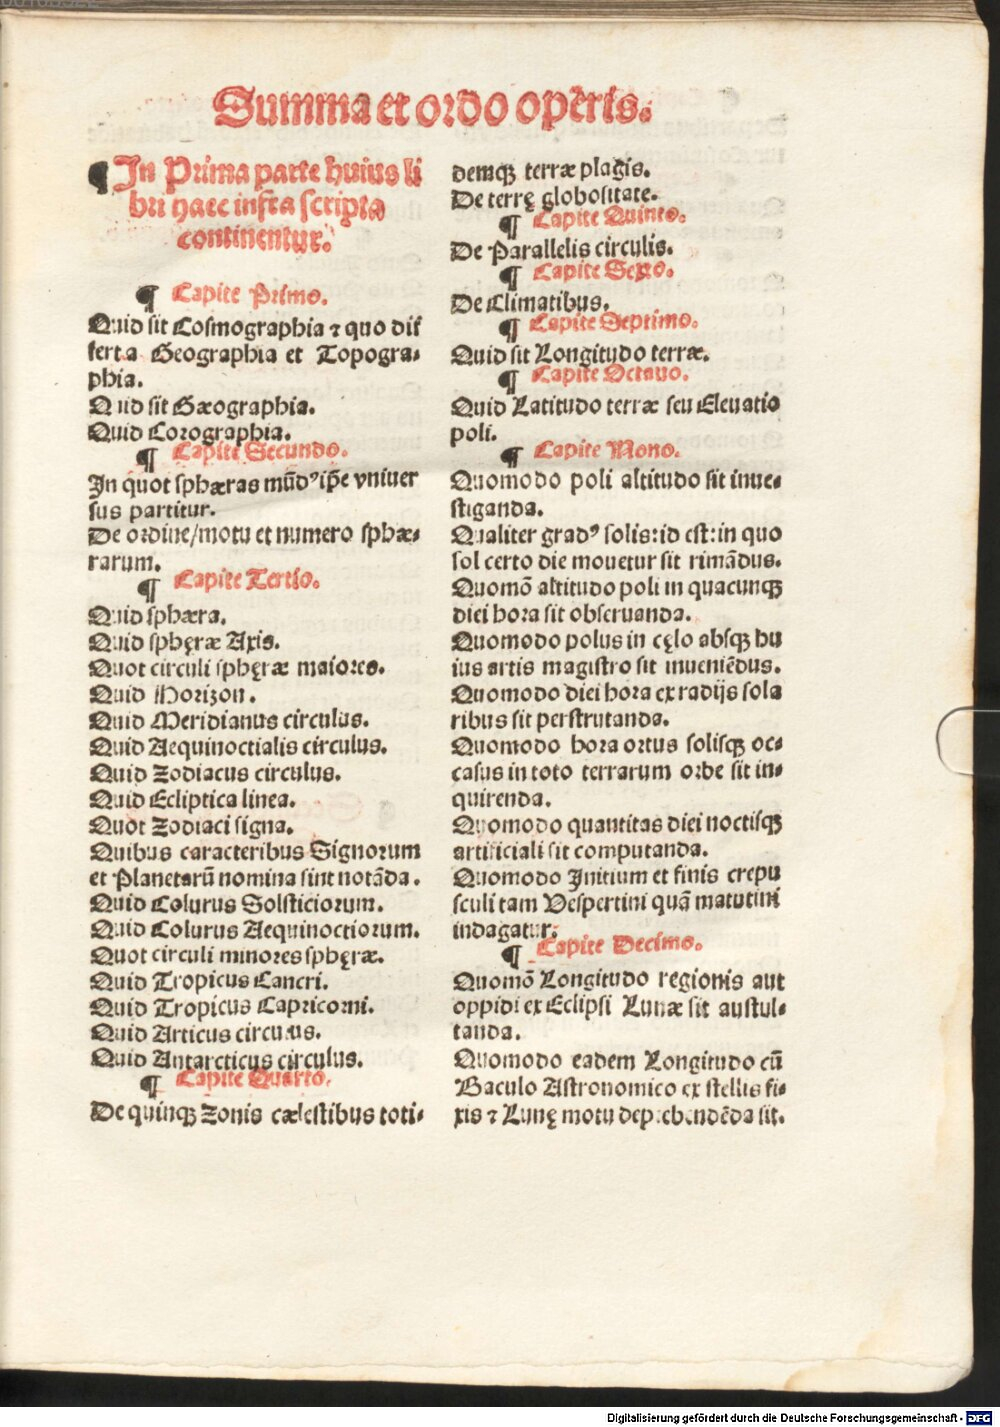 Summa et ordo operis.
¶ In Prima parte huius li
bri haec infra scripta
continentur.
¶ Capite Primo.
Quid sit Cosmographia ⁊ quo dif
ferta Geographia et Topogra-
phia.
Quid sit Gæographia.
Quid Corographia.
¶ Capite Secundo.
In quot sphæras mūdꝰ ip̄e vniuer
sus partitur.
De ordine/motu et numero sphæ-
rarum.
¶ Capite Tertio.
Quid sphæra.
Quid sphęræ Axis.
Quot circuli sphęræ maiores.
Quid Horizon.
Quid Meridianus circulus.
Quid Aequinoctialis circulus.
Quid Zodiacus circulus.
Quid Ecliptica linea.
Quot Zodiaci signa.
Quibus caracteribus Signorum
et Planetarū nomina sint notāda.
Quid Colurus Solsticiorum.
Quid Colurus Aequinoctiorum.
Quot circuli minores sphęræ.
Quid Tropicus Cancri.
Quid Tropicus Capricorni.
Quid Articus circulus.
Quid Antarcticus circulus.
¶ Capite Quarto.
De quinqꝫ Zonis cælestibus toti-
demqꝫ terræ plagis.
De terrę globositate.
¶ Capite Quinto.
De Parallelis circulis.
¶ Capite Sexto.
De Climatibus.
¶ Capite Septimo.
Quid sit Longitudo terræ.
¶ Capite Octauo.
Quid Latitudo terræ seu Eleuatio
poli.
¶ Capite Nono.
Quomodo poli altitudo sit inue-
stiganda.
Qualiter gradꝰ solis: id est: in quo
sol certo die mouetur sit rimādus.
Quomō altitudo poli in quacunqꝫ
diei hora sit obseruanda.
Quomodo polus in cęlo absqꝫ hu
ius artis magistro sit inueniēdus.
Quomodo diei hora ex radijs sola
ribus sit perstrutanda.
Quomodo hora ortus solisqꝫ oc-
casus in toto terrarum orbe sit in-
quirenda.
Quomodo quantitas diei noctisqꝫ
artificiali sit computanda.
Quomodo Initium et finis crepu
sculi tam Vespertini quā matutini
indagatur.
¶ Capite Decimo.
Quomō Longitudo regionis aut
oppidi ex Eclipsi Lunæ sit austul-
tanda.
Quomodo eadem Longitudo cū
Baculo Astronomico ex stellis fi-
xis ⁊ Lunę motu deprehendēda sit.
Digitalisierung gefördert durch die Deutsche Forschungsgemeinschaft - DFG